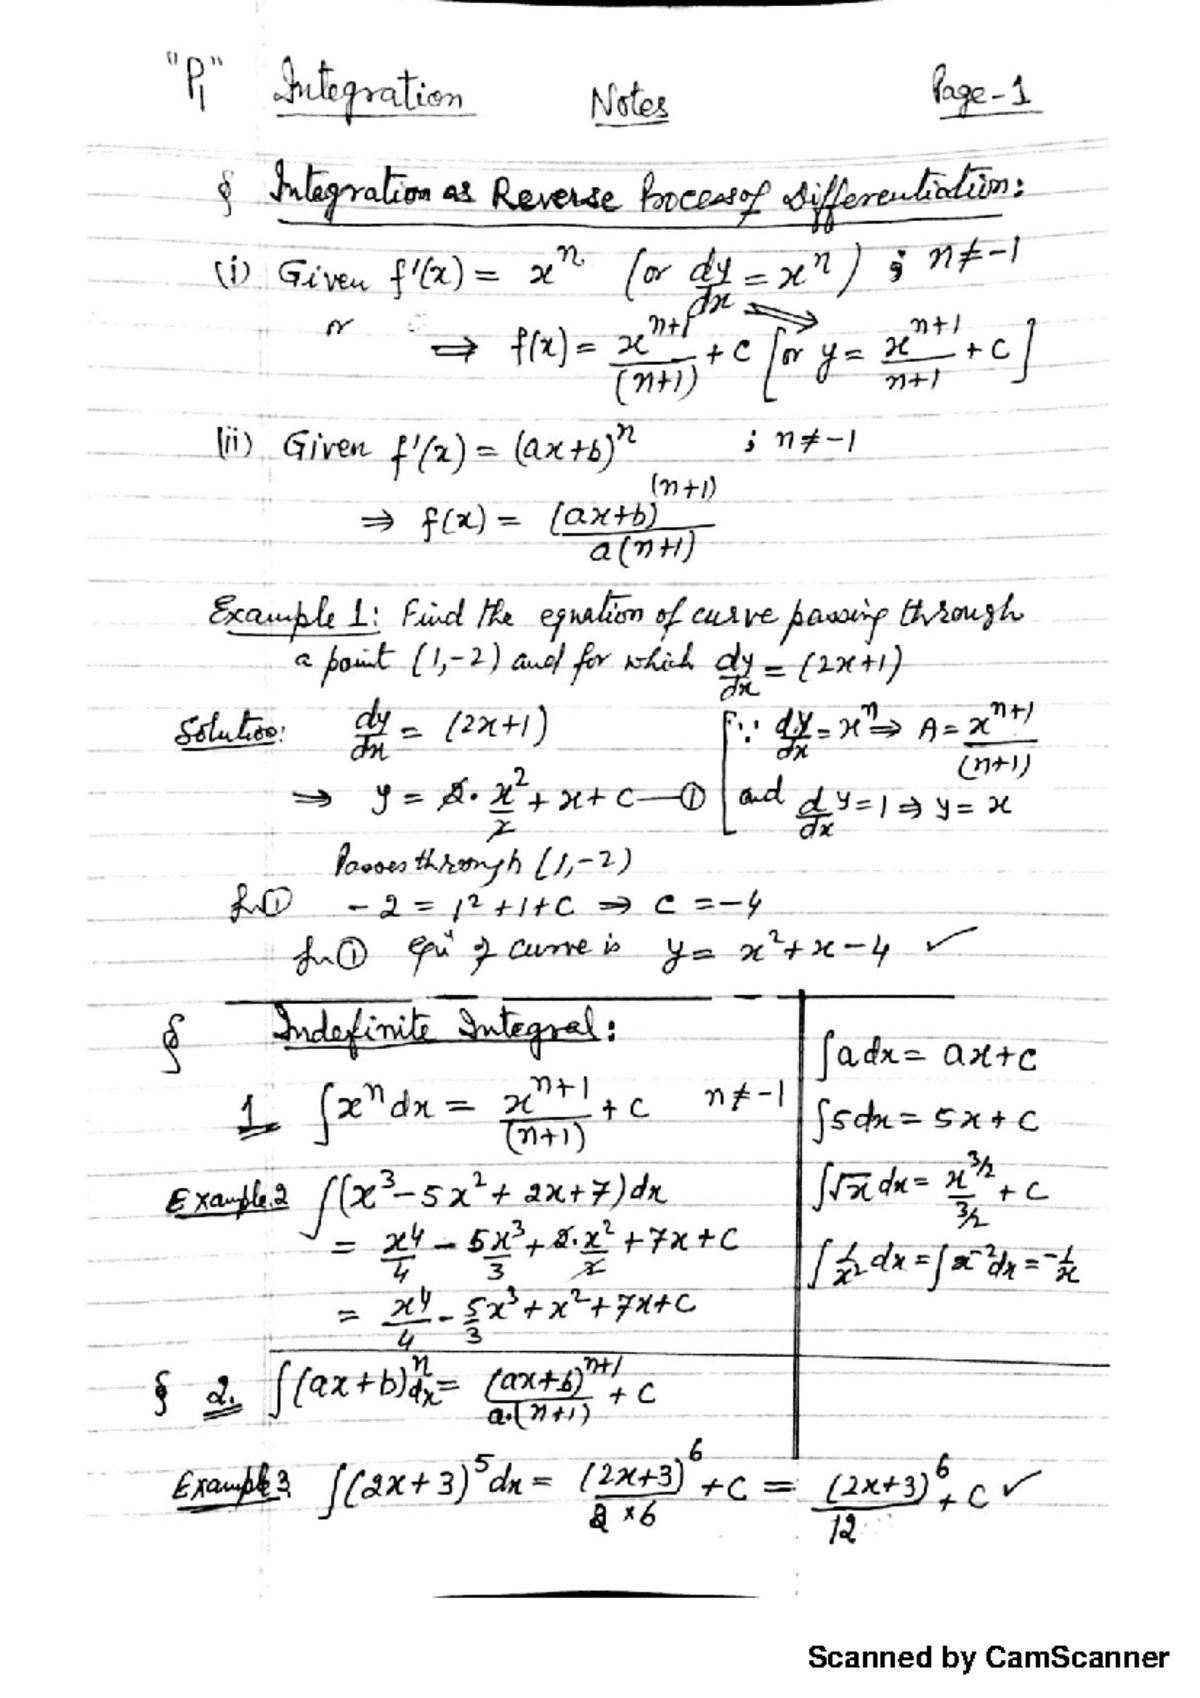 "P1" Integration Notes Page-1
§ Integration as Reverse Process of Differentiation:
(i) Given f'(x) = x^n (or dy/dx = x^n) ; n≠-1
or ⇒ f(x) = x^(n+1)/(n+1) + C [or y = x^(n+1)/(n+1) + C]
(ii) Given f'(x) = (ax+b)^n ; n≠-1
⇒ f(x) = (ax+b)^(n+1)/a(n+1)
Example 1: Find the equation of curve passing through
a point (1,-2) and for which dy/dx = (2x+1)
Solution: dy/dx = (2x+1) [∵ dy/dx = x^n ⇒ A = x^(n+1)/(n+1)
⇒ y = 2·x²/2 + x + C —① and d/dx y = 1 ⇒ y = x
Passes through (1,-2)
In ① -2 = 1² + 1 + C ⇒ C = -4
In ① equⁿ of curve is y = x² + x - 4 ✓
§ Indefinite Integral:
1. ∫x^n dx = x^(n+1)/(n+1) + C n≠-1
Example.2 ∫(x³ - 5x² + 2x + 7)dx
= x⁴/4 - 5x³/3 + 2·x²/2 + 7x + C
= x⁴/4 - 5/3 x³ + x² + 7x + C
∫a dx = ax + C
∫5 dx = 5x + C
∫√x dx = x^(3/2)/(3/2) + C
∫1/x² dx = ∫x⁻² dx = -1/x
§ 2. ∫(ax+b)^n dx = (ax+b)^(n+1)/a·(n+1) + C
Example 3. ∫(2x+3)⁵ dx = (2x+3)⁶/2×6 + C = (2x+3)⁶/12 + C ✓
Scanned by CamScanner